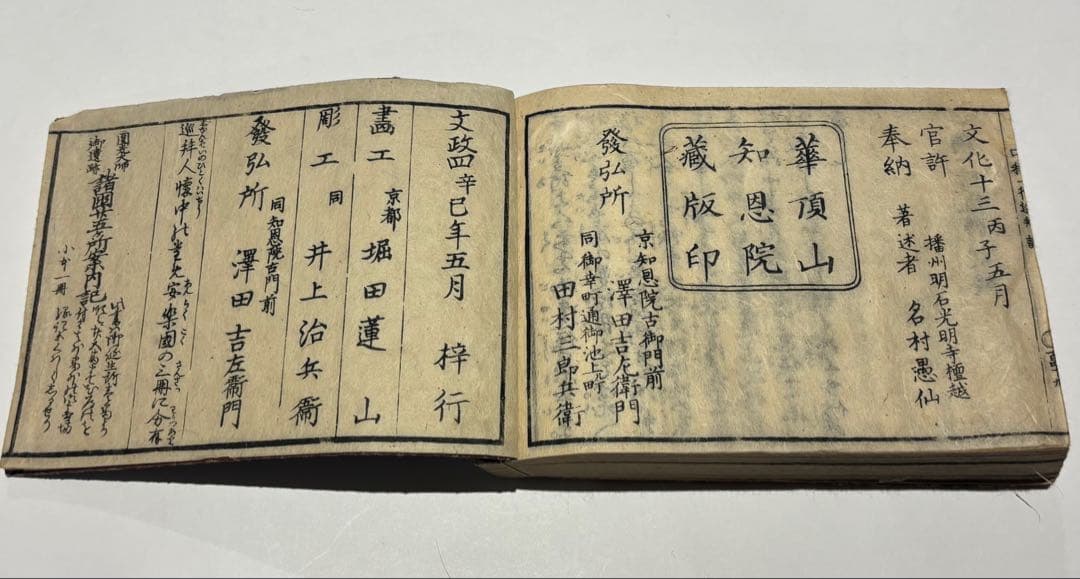 文化十三丙子五月
官許 播州明石光明寺檀越
奉納 著述者 名村愚仙
華頂山
知恩院
藏版印
京知恩院古御門前
發弘所 澤田吉左衛門
同御幸町通御池上町
田村三郎兵衛
文政四辛巳年五月 梓行
畵工 京都 堀田蓮山
彫工 同 井上治兵衞
同知恩院古門前
發弘所 澤田吉左衞門
巡拜人懐中の
安樂國の三冊に分有
圓光大師
御遺跡 諸國廿五所案内記
小本一冊